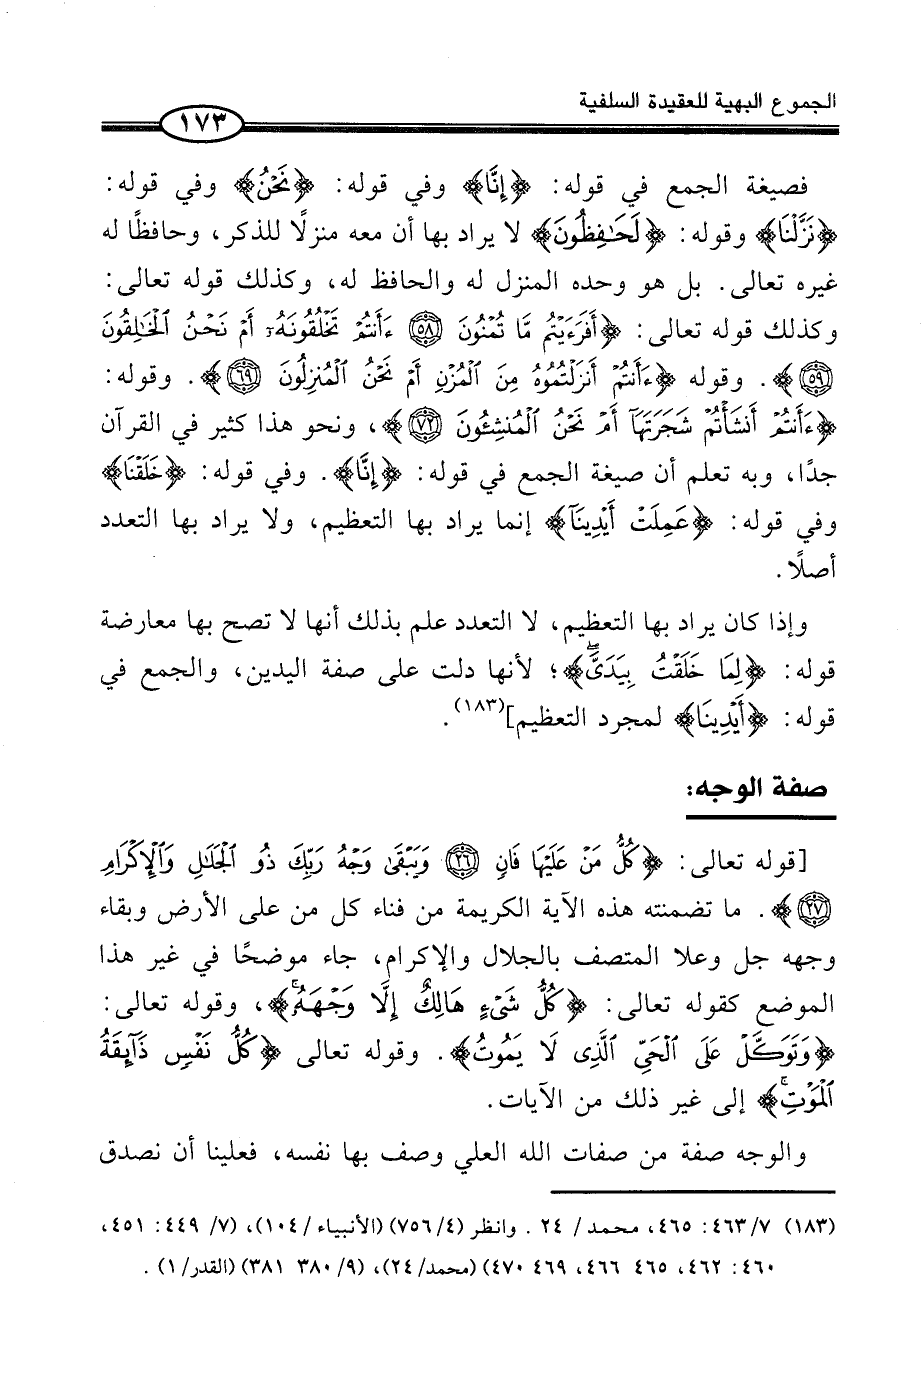 الجموع البهية للعقيدة السلفية
١٧٣
فصيغة الجمع في قوله: ﴿إِنَّا﴾ وفي قوله: ﴿نَحْنُ﴾ وفي قوله:
﴿نَزَّلْنَا﴾ وقوله: ﴿لَحَـٰفِظُونَ﴾ لا يراد بها أن معه منزلًا للذكر، وحافظًا له
غيره تعالى. بل هو وحده المنزل له والحافظ له، وكذلك قوله تعالى:
وكذلك قوله تعالى: ﴿أَفَرَءَيْتُم مَّا تُمْنُونَ ٥٨ ءَأَنتُمْ تَخْلُقُونَهُۥٓ أَمْ نَحْنُ ٱلْخَـٰلِقُونَ
٥٩﴾. وقوله ﴿ءَأَنتُمْ أَنزَلْتُمُوهُ مِنَ ٱلْمُزْنِ أَمْ نَحْنُ ٱلْمُنزِلُونَ ٦٩﴾. وقوله:
﴿ءَأَنتُمْ أَنشَأْتُمْ شَجَرَتَهَآ أَمْ نَحْنُ ٱلْمُنشِـُٔونَ ٧٢﴾، ونحو هذا كثير في القرآن
جدًا، وبه تعلم أن صيغة الجمع في قوله: ﴿إِنَّا﴾. وفي قوله: ﴿خَلَقْنَا﴾
وفي قوله: ﴿عَمِلَتْ أَيْدِينَآ﴾ إنما يراد بها التعظيم، ولا يراد بها التعدد
أصلًا.
وإذا كان يراد بها التعظيم، لا التعدد علم بذلك أنها لا تصح بها معارضة
قوله: ﴿لِمَا خَلَقْتُ بِيَدَىَّۖ﴾؛ لأنها دلت على صفة اليدين، والجمع في
قوله: ﴿أَيْدِينَا﴾ لمجرد التعظيم](١٨٣).
صفة الوجه:
[قوله تعالى: ﴿كُلُّ مَنْ عَلَيْهَا فَانٍ ٢٦ وَيَبْقَىٰ وَجْهُ رَبِّكَ ذُو ٱلْجَلَـٰلِ وَٱلْإِكْرَامِ
٢٧﴾. ما تضمنته هذه الآية الكريمة من فناء كل من على الأرض وبقاء
وجهه جل وعلا المتصف بالجلال والإكرام، جاء موضحًا في غير هذا
الموضع كقوله تعالى: ﴿كُلُّ شَىْءٍ هَالِكٌ إِلَّا وَجْهَهُۥۚ﴾، وقوله تعالى:
﴿وَتَوَكَّلْ عَلَى ٱلْحَىِّ ٱلَّذِى لَا يَمُوتُ﴾. وقوله تعالى ﴿كُلُّ نَفْسٍ ذَآئِقَةُ
ٱلْمَوْتِۚ﴾ إلى غير ذلك من الآيات.
والوجه صفة من صفات الله العلي وصف بها نفسه، فعلينا أن نصدق
(١٨٣) ٧/ ٤٦٣: ٤٦٥، محمد/ ٢٤. وانظر (٤/ ٧٥٦) (الأنبياء/ ١٠٤)، (٧/ ٤٤٩: ٤٥١،
٤٦٠: ٤٦٢، ٤٦٥ ٤٦٦، ٤٦٩ ٤٧٠) (محمد/٢٤)، (٩/ ٣٨٠ ٣٨١) (القدر/ ١).